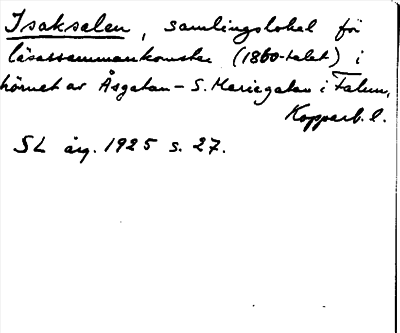 Isaksalen, samlingslokal för
läsaresammankomster (1860-talet) i
hörnet av Åsgatan – S. Mariegatan i Falun,
Kopparb. l.
SL årg. 1925 s. 27.